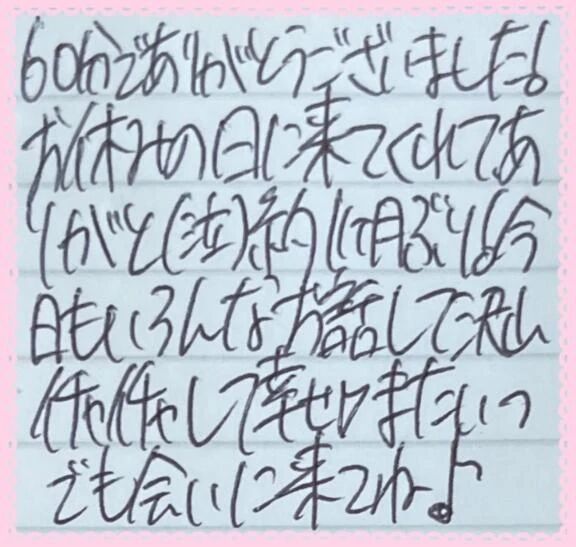 60分でありがとうございました!
お休みの日に来てくれてあ
りがと(泣)約1ヶ月ぶり!今
日もいろんなお話して沢山
イチャイチャして幸せ♡またいつ
でも会いに来てね♪